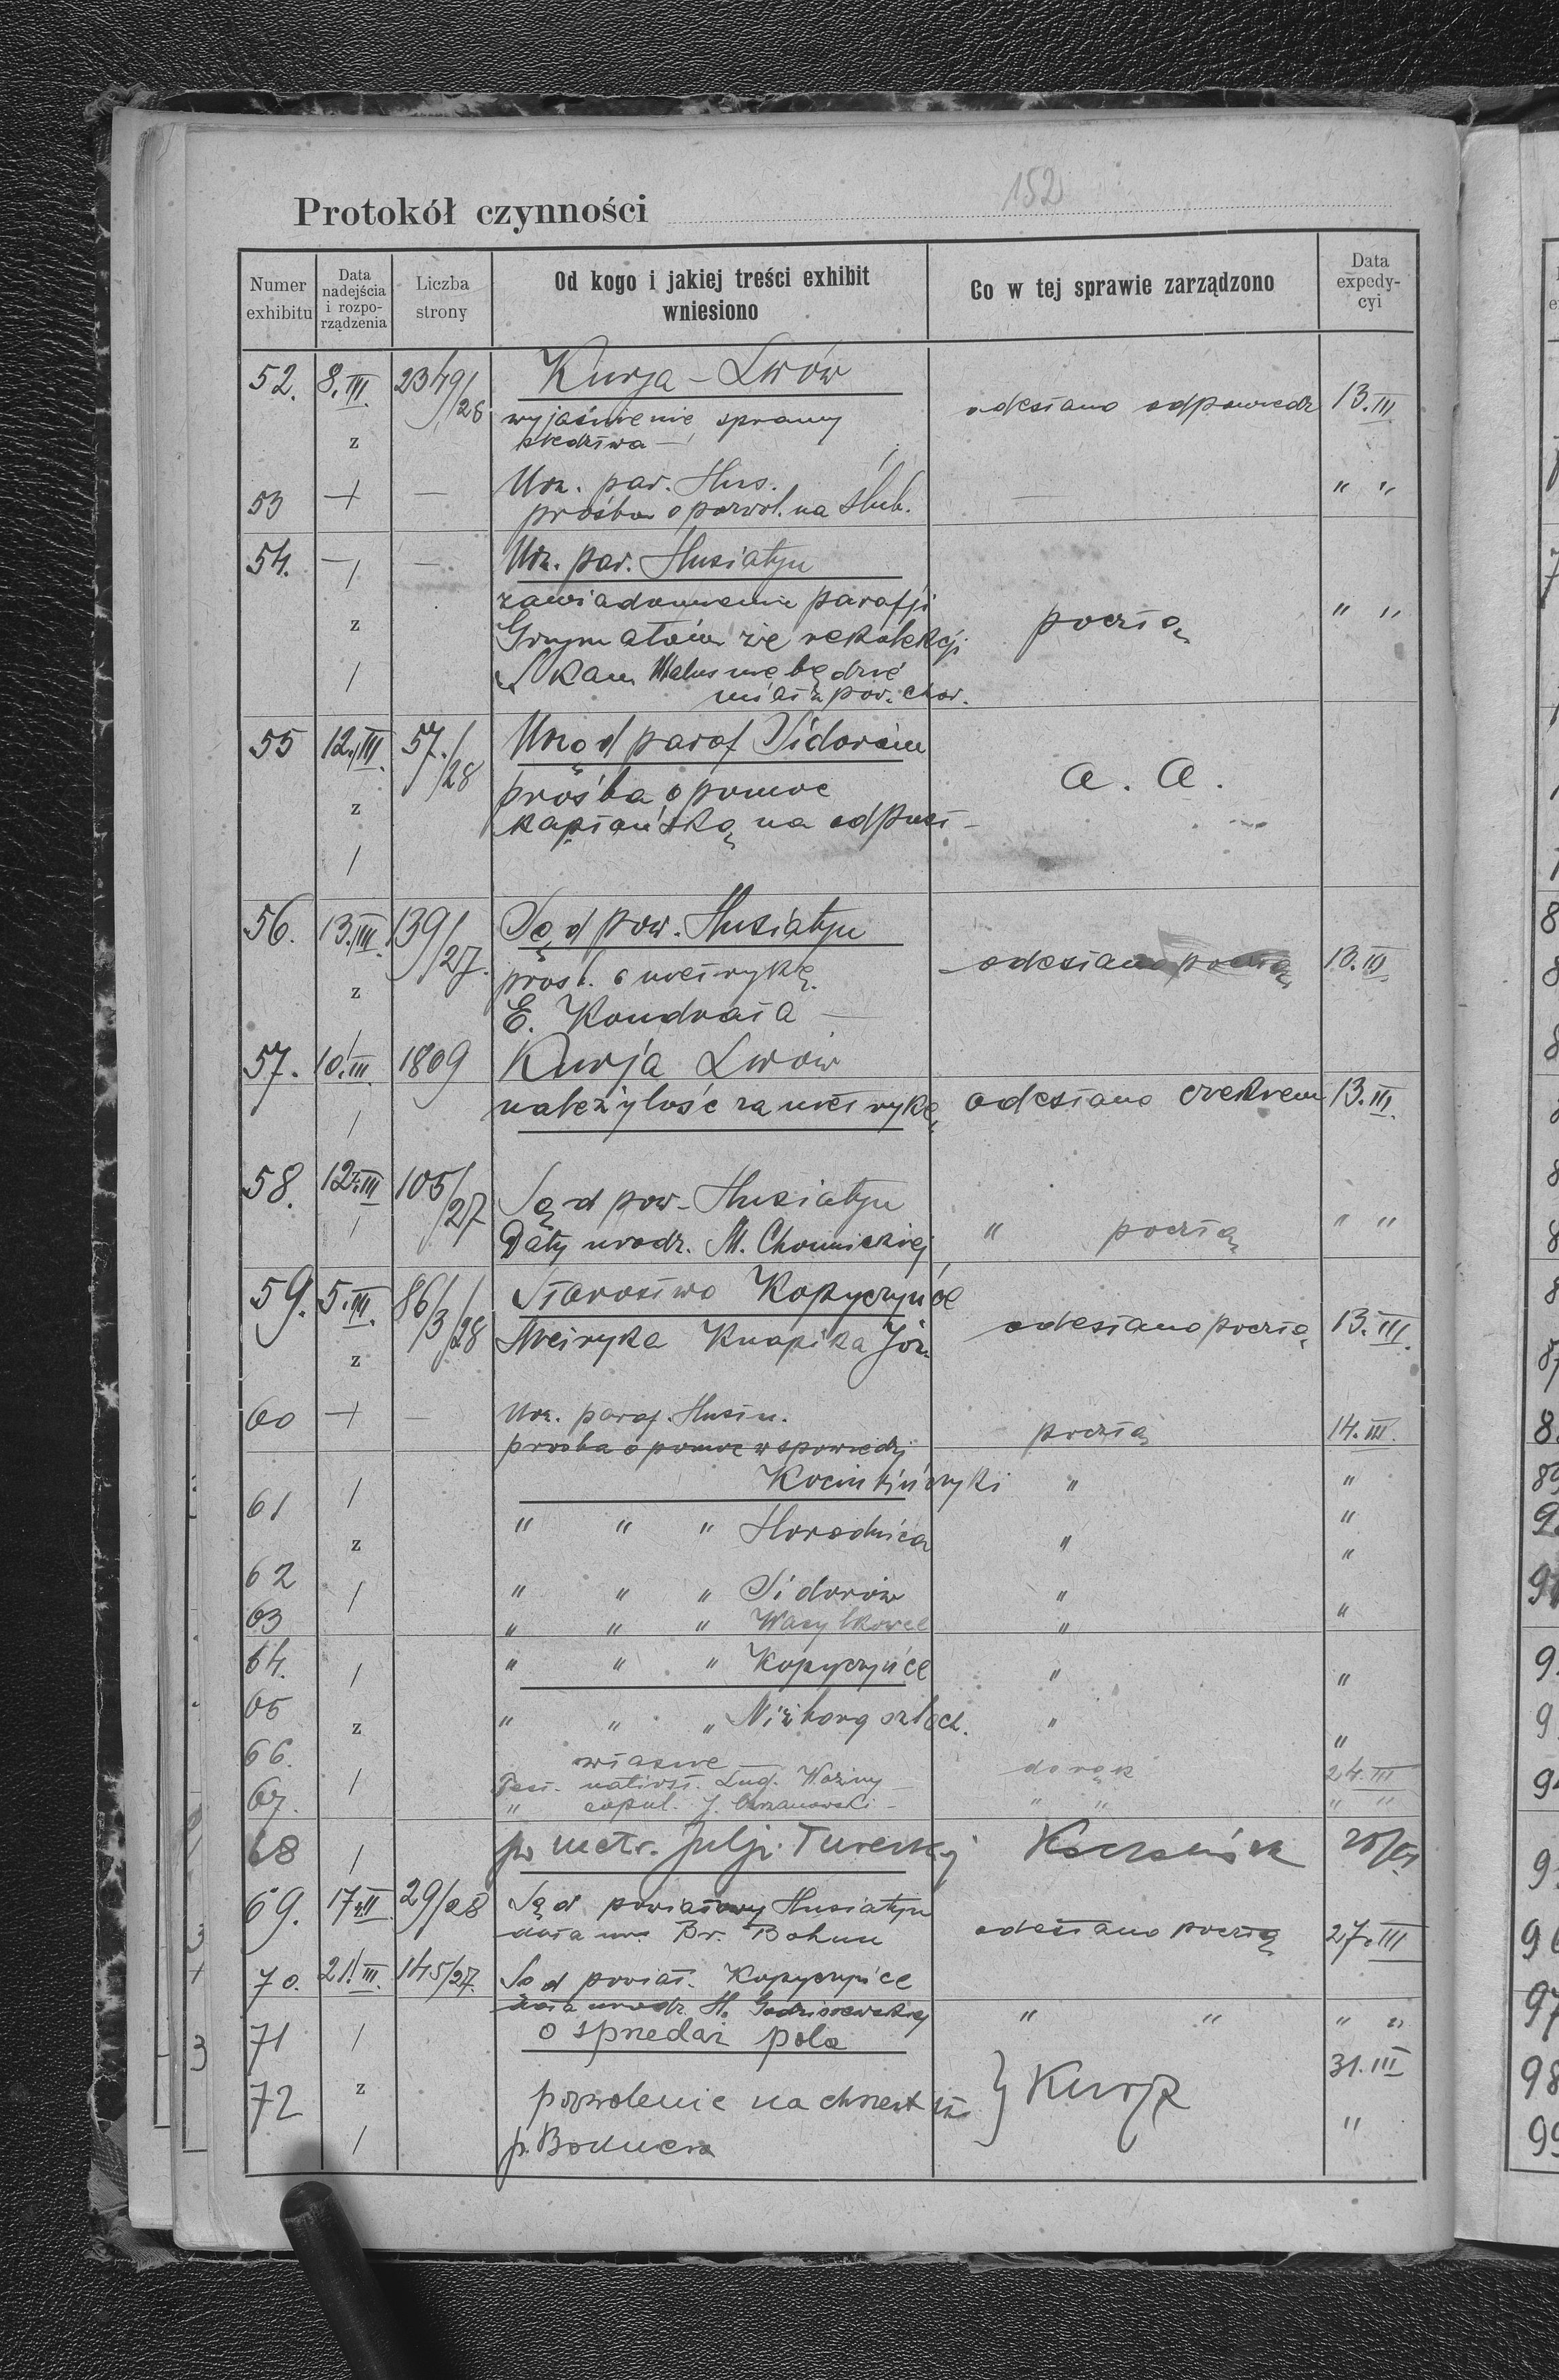 152
Protokół czynności
Numer exhibitu
Data nadejścia i rozporządzenia
Liczba strony
Od kogo i jakiej treści exhibit wniesiono
Co w tej sprawie zarządzono
Data expedycyi
52. 8.III. 2349/28 Kurja - Lwów
wyjaśnienie sprawy odesłano odpowiedź 13.III
śledztwa —
z
53 + — Urz. par. Hus. — " "
prośba o pozwol. na ślub.
54. — — Urz. par. Husiatyn
zawiadomienie parafji
z Grzymałów że rekolekcji pocztą " "
nie będzie
miał
55 12.III. 57./28 Urząd paraf Sidorów
prośba o pomoc a. a.
z kapłańską na odpust -
56. 13.III. 139/27. Sąd pow. Husiatyn
proś. o metrykę odesłano pocztą 13.III
z E. Kondrata —
57. 10.III. 1809 Kurja Lwów
należytość za metrykę odesłano czekiem 13.III.
58. 12.III 105/27 Sąd pow. Husiatyn
Daty urodz. M. Chomickiej " pocztą " "
59. 5.III. 86/3/28 Starostwo Kopyczyńce
z Metryka Knapika Józ. odesłano pocztą 13.III.
60 + — Urz. paraf. Husia.
prośba o pomoc w spowiedzi pocztą 14.III.
Kociubińczyki " "
61 " " " Horodnica " "
z
62 " " " Sidorów " "
63 " " " Wasylkowce " "
64. " " " Kopyczyńce " "
65 " " " Niżborg szlach. " "
z
66. własne
Test. nativit. Lud. Woźny do rąk 24.III
67. " copul. J. " " " "
68 po metr. Julji Tureckiej
69. 17.III 29/28 Sąd powiatowy Husiatyn
data ur. Br. Bohun odesłano pocztą 27.III
70. 21.III. 145/27. Sąd powiat. Kopyczyńce
data urodz. H. " " " "
71 o sprzedaż pola
31.III
z } Kurja
72 pozwolenie na chrzest
p. Bodnera "